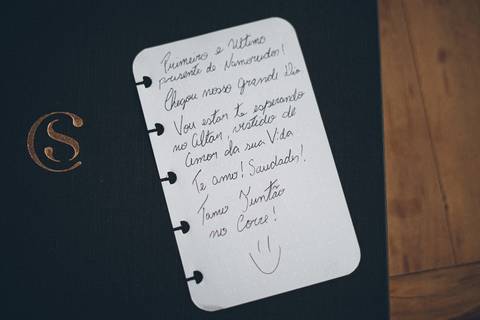 Primeiro e Ultimo
presente de Namorados!
Chegou nosso Grande Dia
Vou estar te esperando
no Altar, vestido de
Amor da sua Vida
Te amo! Saudades!
Tamo Juntão
no Corre!
CS